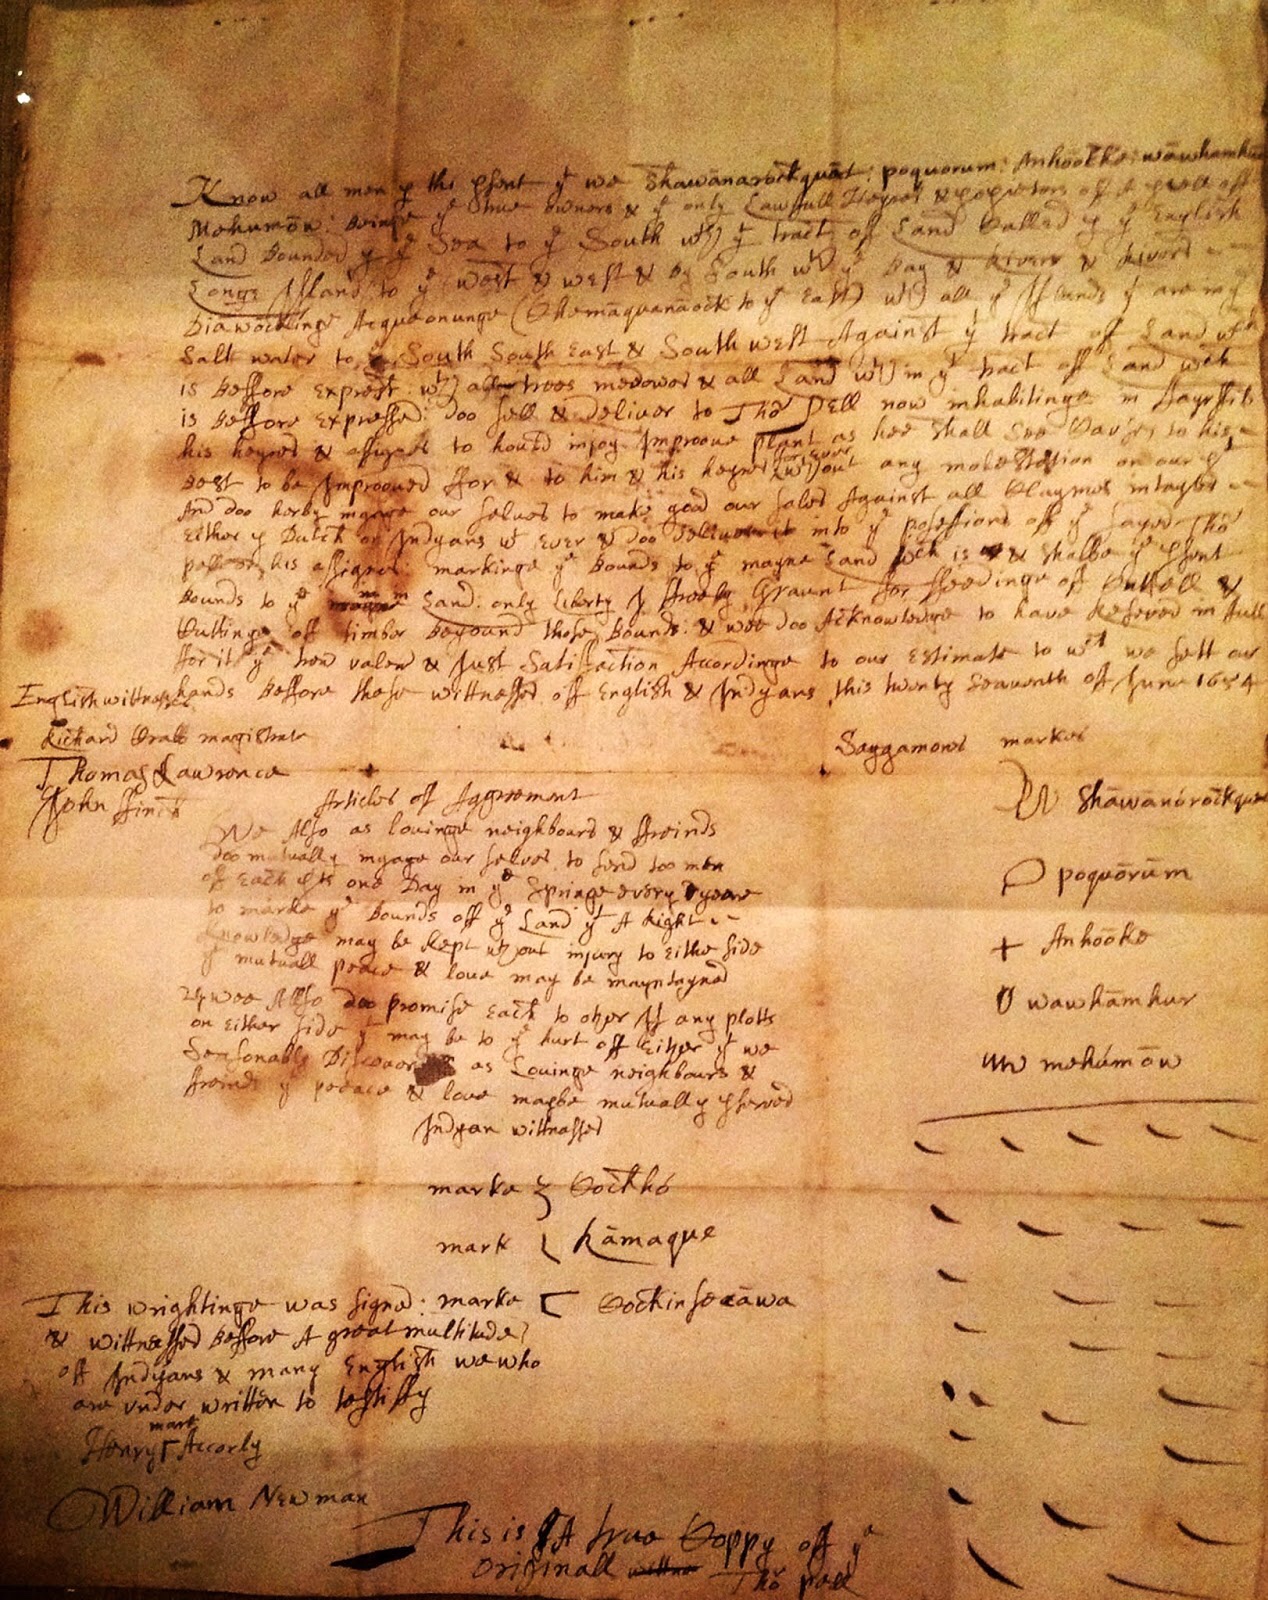 Know all men by this psent yt we Shawānarockquāt: poquorum: Anhōōke: wāwhamkus
Mehumōw: Beinge ye true owners & ye only Lawfull Heyres & propietors off ye off
Land Bounded by ye Sea to ye South wth yt tract off Land Called by ye English
Longe Island to ye west & west & By South wth ye Bay & River & River
Diawōckinge Acqueonunge (Chemāquanāock to ye East) wth all ye Islands yt are in ye
Salt water to ye South South East & South west Against yt tract off Land wch
is Beffore exprest: wth all trees medowes & all Land wth in ye tract off Land wch
is Beffore expressed: doo sell & deliver to Tho Pell now inhabitinge in
his heyres & assignes to hould injoy Improove plant as hee shall See Cause to his
Best to be Improoved ffor & to him & his heyres ffor ever wthout any molestation on our pt
And doo herby ingage our selves to make good our sales Against all Claymes
Either by Dutch or Indyans wt ever & doo deliver it into ye possessions off ye sayed Tho
pell or his assignes: markinge ye Bounds to ye mayne Land wch is & shalbe ye psent
Bounds to ye main Land: only liberty I freely Graunt ffor ffeedinge off Cattell &
Cuttinge off timber Beyound those Bounds: & wee doo Acknowledge to have Reseved in full
ffor it ye trew valew & Just Satisfaction Accordinge to our Estimate to wch we sett our
hands Beffore these wittnesses off English & Indyans this twenty Seaventh off June 1654
English wittnesses
Richard Crab magistrate
Thomas Lawrence
John ffinch
Saygamores markes
Shāwānórōckquat
poquōrūm
Anhōōke
wawhāmkur
mehúmōw
Articles off Aggrement
We Also as lovinge neighbours & ffreinds
doo mutually ingage our selves to send too men
off Each pts one Day in ye Springe every yeare
to marke ye Bounds off ye Land yt A Right
Knowledge may be Kept wthout injury to either side
yt mutuall peace & love may be mayntayned
2ly wee Allso doo promise Each to other If any plotts
on Either side yt may be to ye hurt off Either yt we
Seasonably Discover as Lovinge neighbours &
ffreinds yt peeace & love maybe mutually pserved
Indyan wittnesses
marke Cockhó
mark Kāmaque
marke Cockinsecāwa
This wrightinge was signed:
& wittnessed Beffore A great multitude
off Indyans & many English we who
are under written to testiffy
mark
Henry Accorly
William Newman
This is A true Coppy off ye
Originall Tho pell